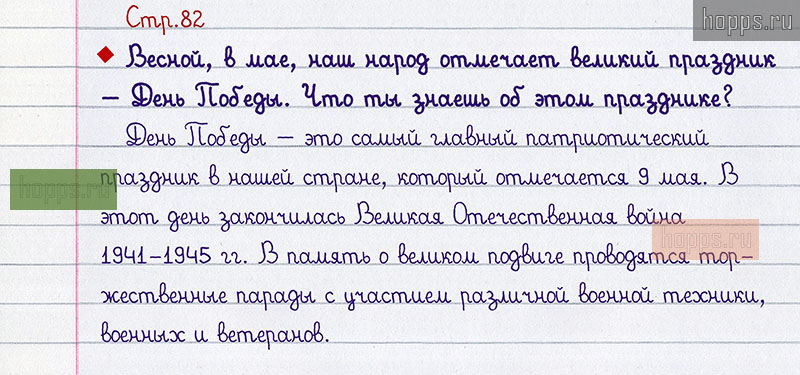 hopps.ru
Стр.82
Весной, в мае, наш народ отмечает великий праздник
– День Победы. Что ты знаешь об этом празднике?
День Победы – это самый главный патриотический
праздник в нашей стране, который отмечается 9 мая. В
hopps.ru
этот день закончилась Великая Отечественная война
hopps.ru
1941–1945 гг. В память о великом подвиге проводятся тор-
жественные парады с участием различной военной техники,
военных и ветеранов.